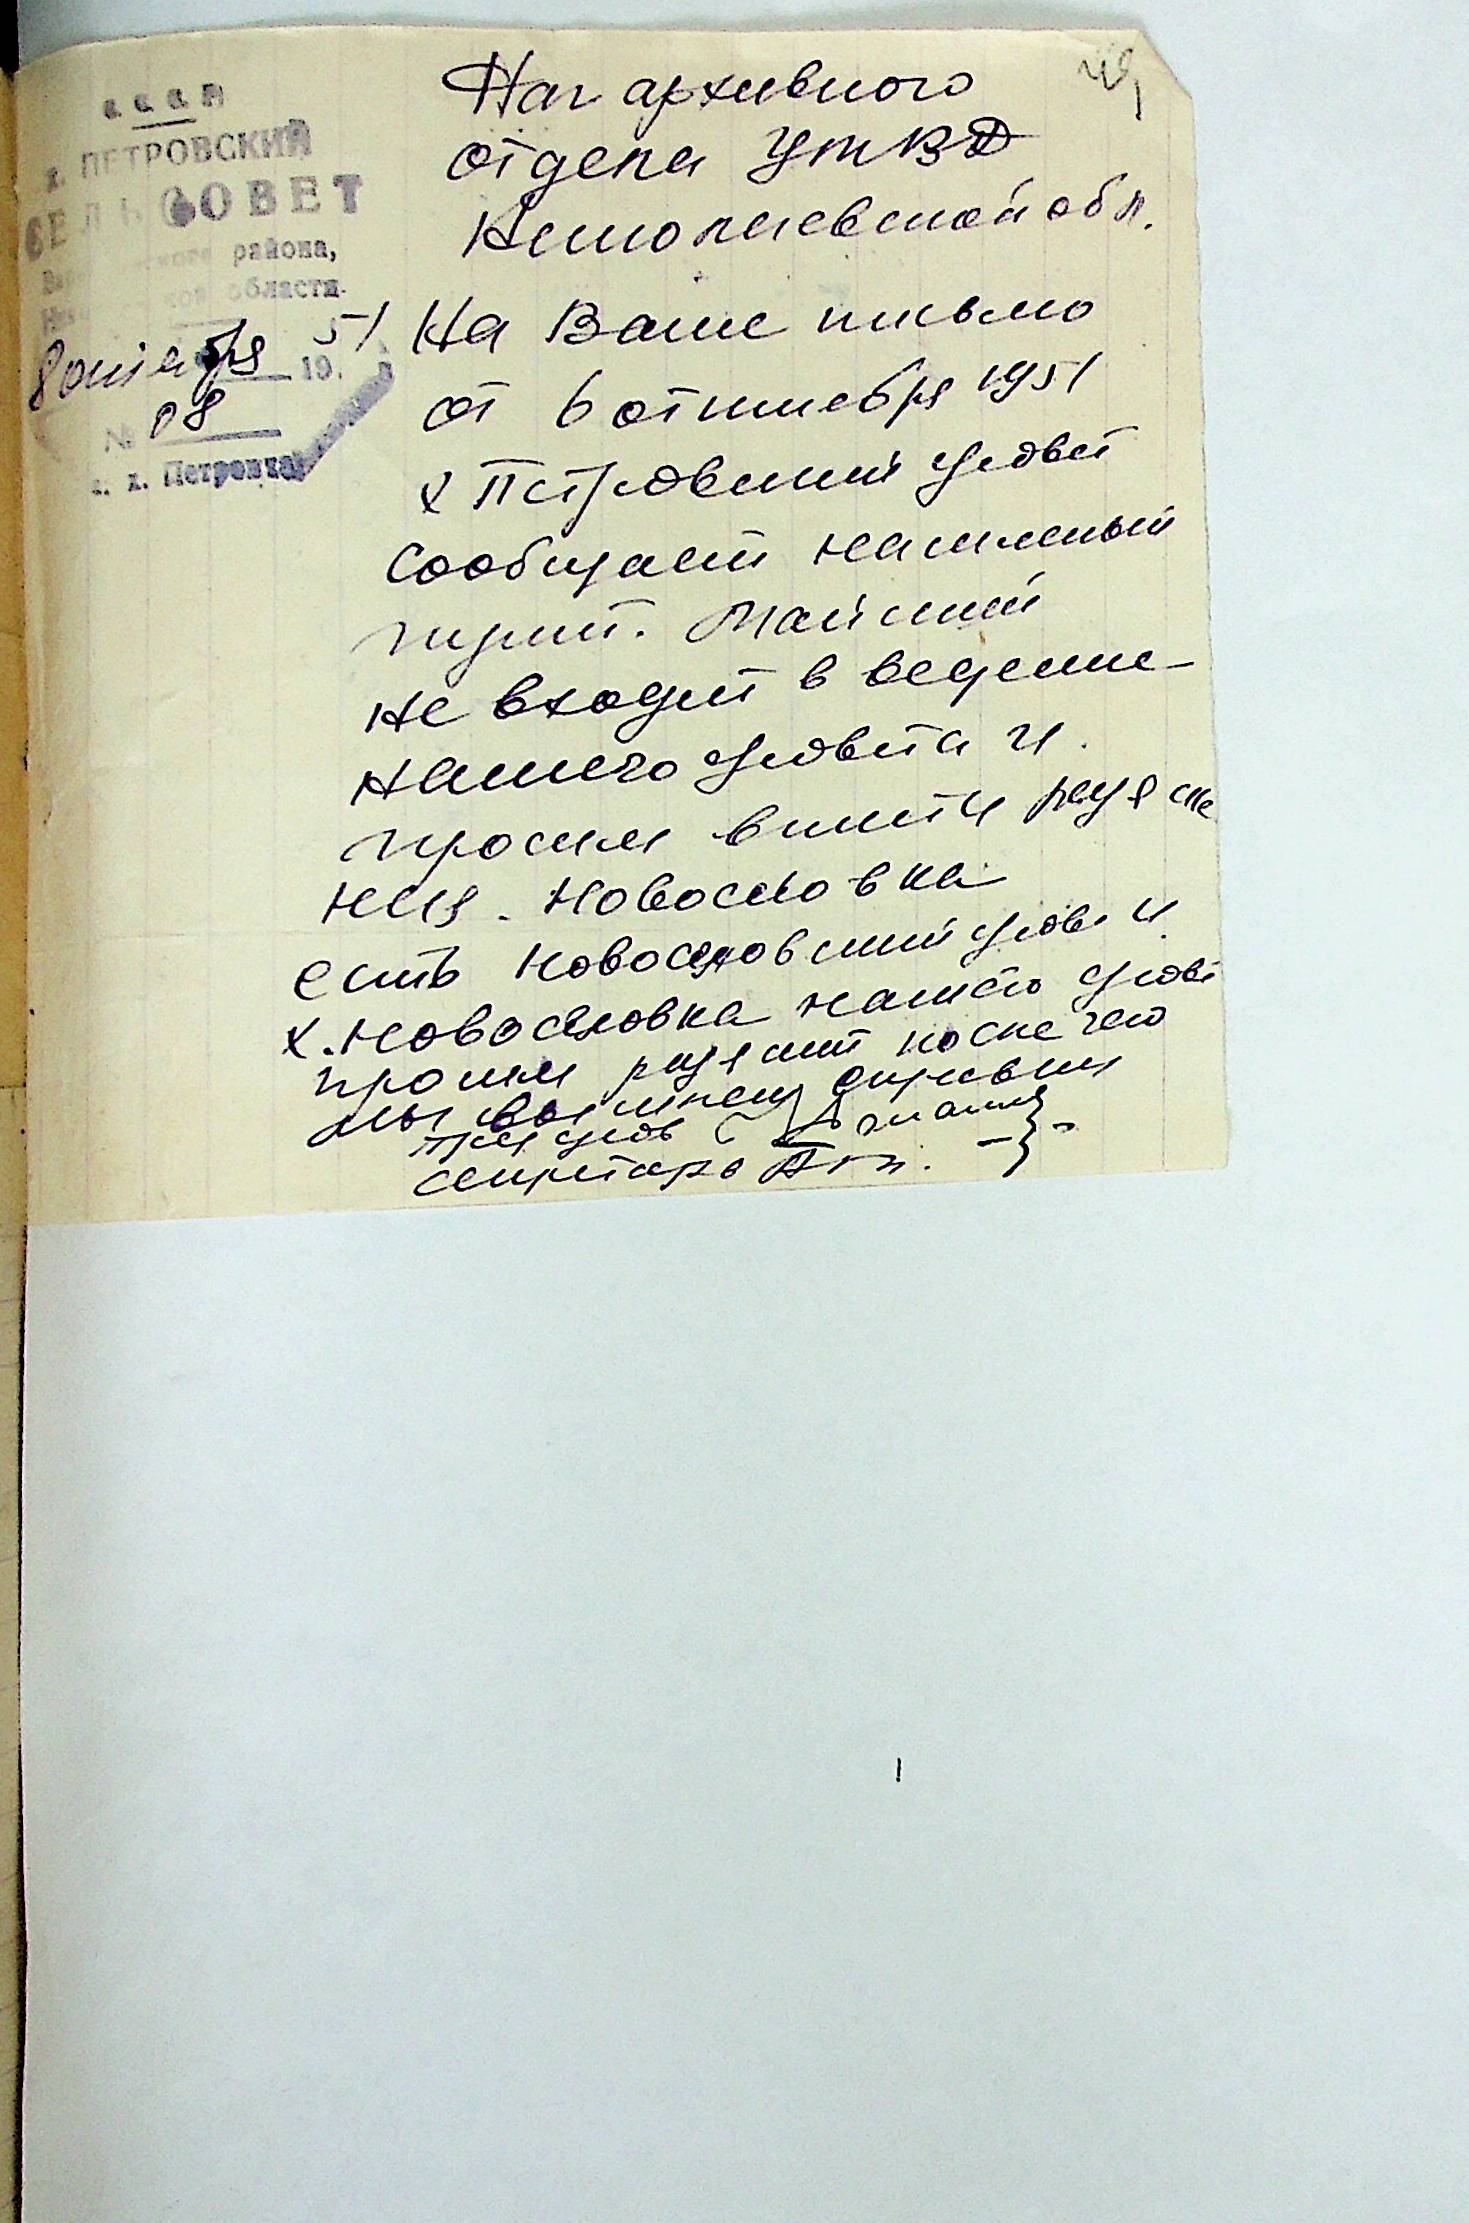 х. ПЕТРОВСКИЙ
СЕЛЬСОВЕТ
района,
области.
8 октября 19 51
№ 08
х. Петровка
Нач архивного
отдела УМВД
Николаевской обл.
На Ваше письмо
от 6 октября 1951
х Петровский с/совет
сообщает населеный
пункт. Майский
не входит в ведение
нашего с/совета и
просим внести разясне
ния. Новоселовка
есть Новоселовский с/сов и
х. Новоселовка нашего с/сове
просим разяснит после чего
мы вышлем
Пред с/сов
секретарь